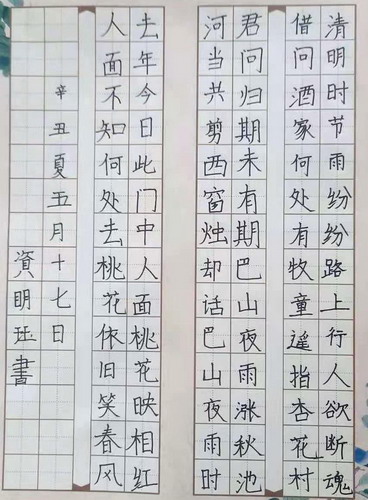 清明时节雨纷纷路上行人欲断魂
借问酒家何处有牧童遥指杏花村
君问归期未有期巴山夜雨涨秋池
河当共剪西窗烛却话巴山夜雨时
去年今日此门中人面桃花映相红
人面不知何处去桃花依旧笑春风
辛丑夏五月十七日
資明珏書